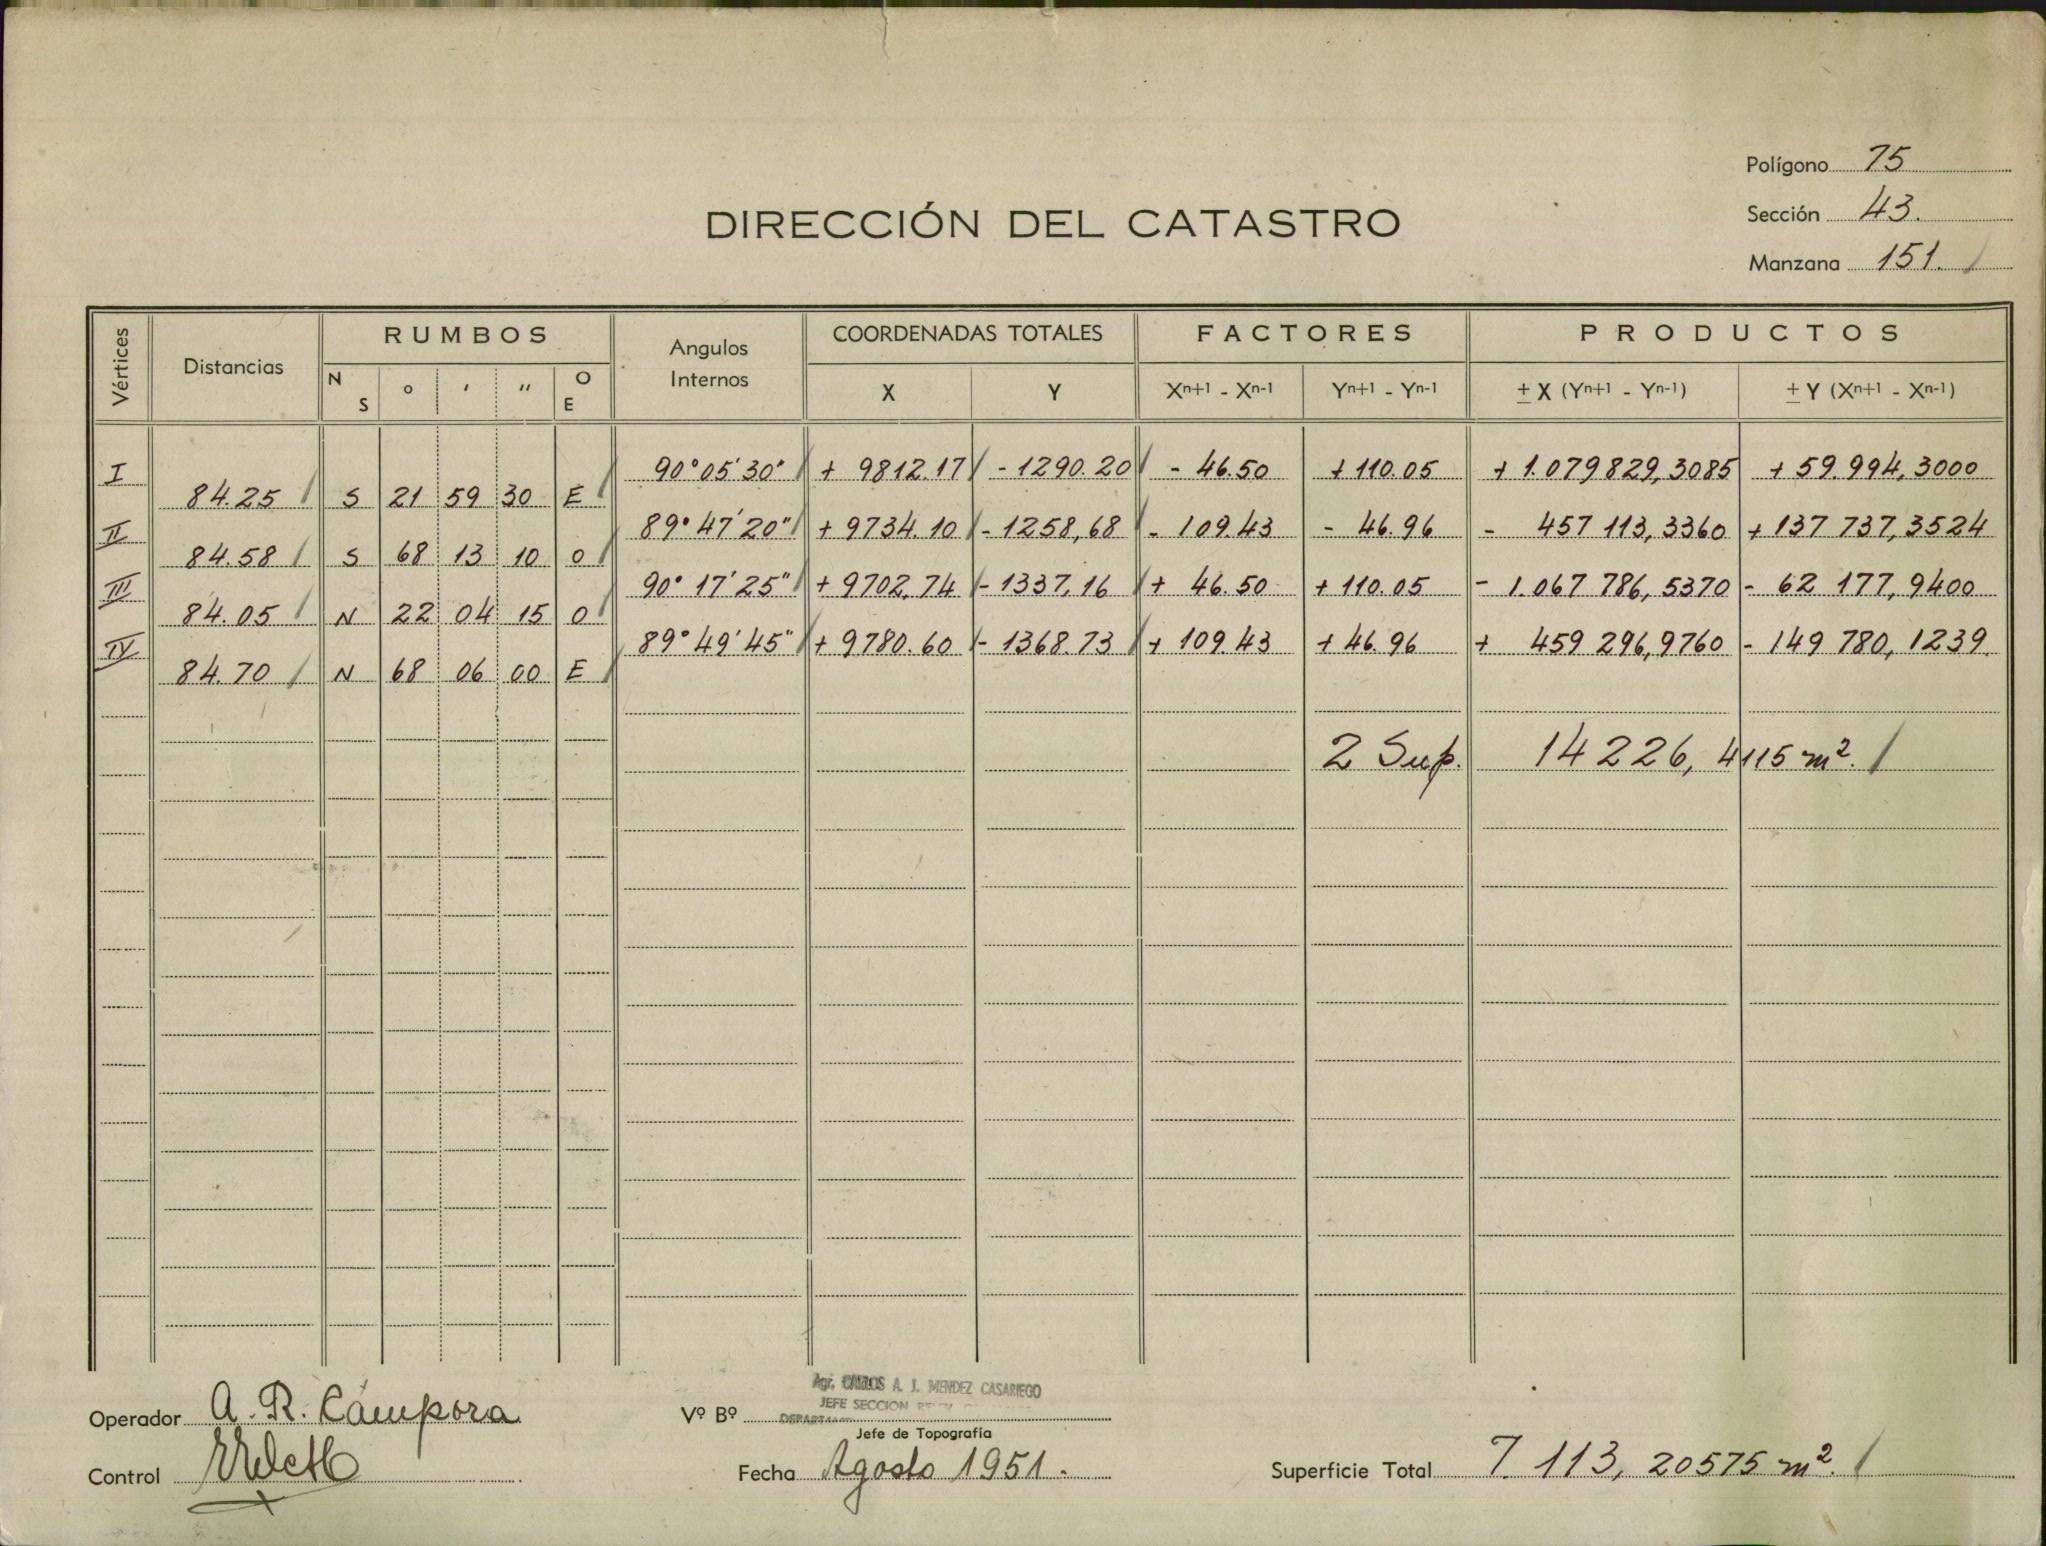 Polígono 75
Sección 43.
Manzana 151.
DIRECCIÓN DEL CATASTRO
Vértices Distancias RUMBOS Angulos Internos COORDENADAS TOTALES FACTORES PRODUCTOS
N S ° ′ ″ O E X Y Xn+1 - Xn-1 Yn+1 - Yn-1 ± X (Yn+1 - Yn-1) ± Y (Xn+1 - Xn-1)
I 90° 05′ 30″ + 9812.17 - 1290.20 - 46.50 + 110.05 + 1.079829,3085 + 59.994,3000
84.25 S 21 59 30 E
II 89° 47′ 20″ + 9734.10 - 1258,68 - 109.43 - 46.96 - 457 113,3360 + 137 737,3524
84.58 S 68 13 10 O
III 90° 17′ 25″ + 9702,74 - 1337,16 + 46.50 + 110.05 - 1.067 786,5370 - 62 177,9400
84.05 N 22 04 15 O
IV 89° 49′ 45″ + 9780.60 - 1368.73 + 109.43 + 46.96 + 459 296,9760 - 149 780,1239.
84.70 N 68 06 00 E
2 Sup. 14226,4115 m².
Agr. CARLOS A. J. MENDEZ CASARIEGO
JEFE SECCION
Operador A. R. Cámpora Vº Bº
Jefe de Topografía
Control Fecha Agosto 1951. Superficie Total 7.113,20575 m².